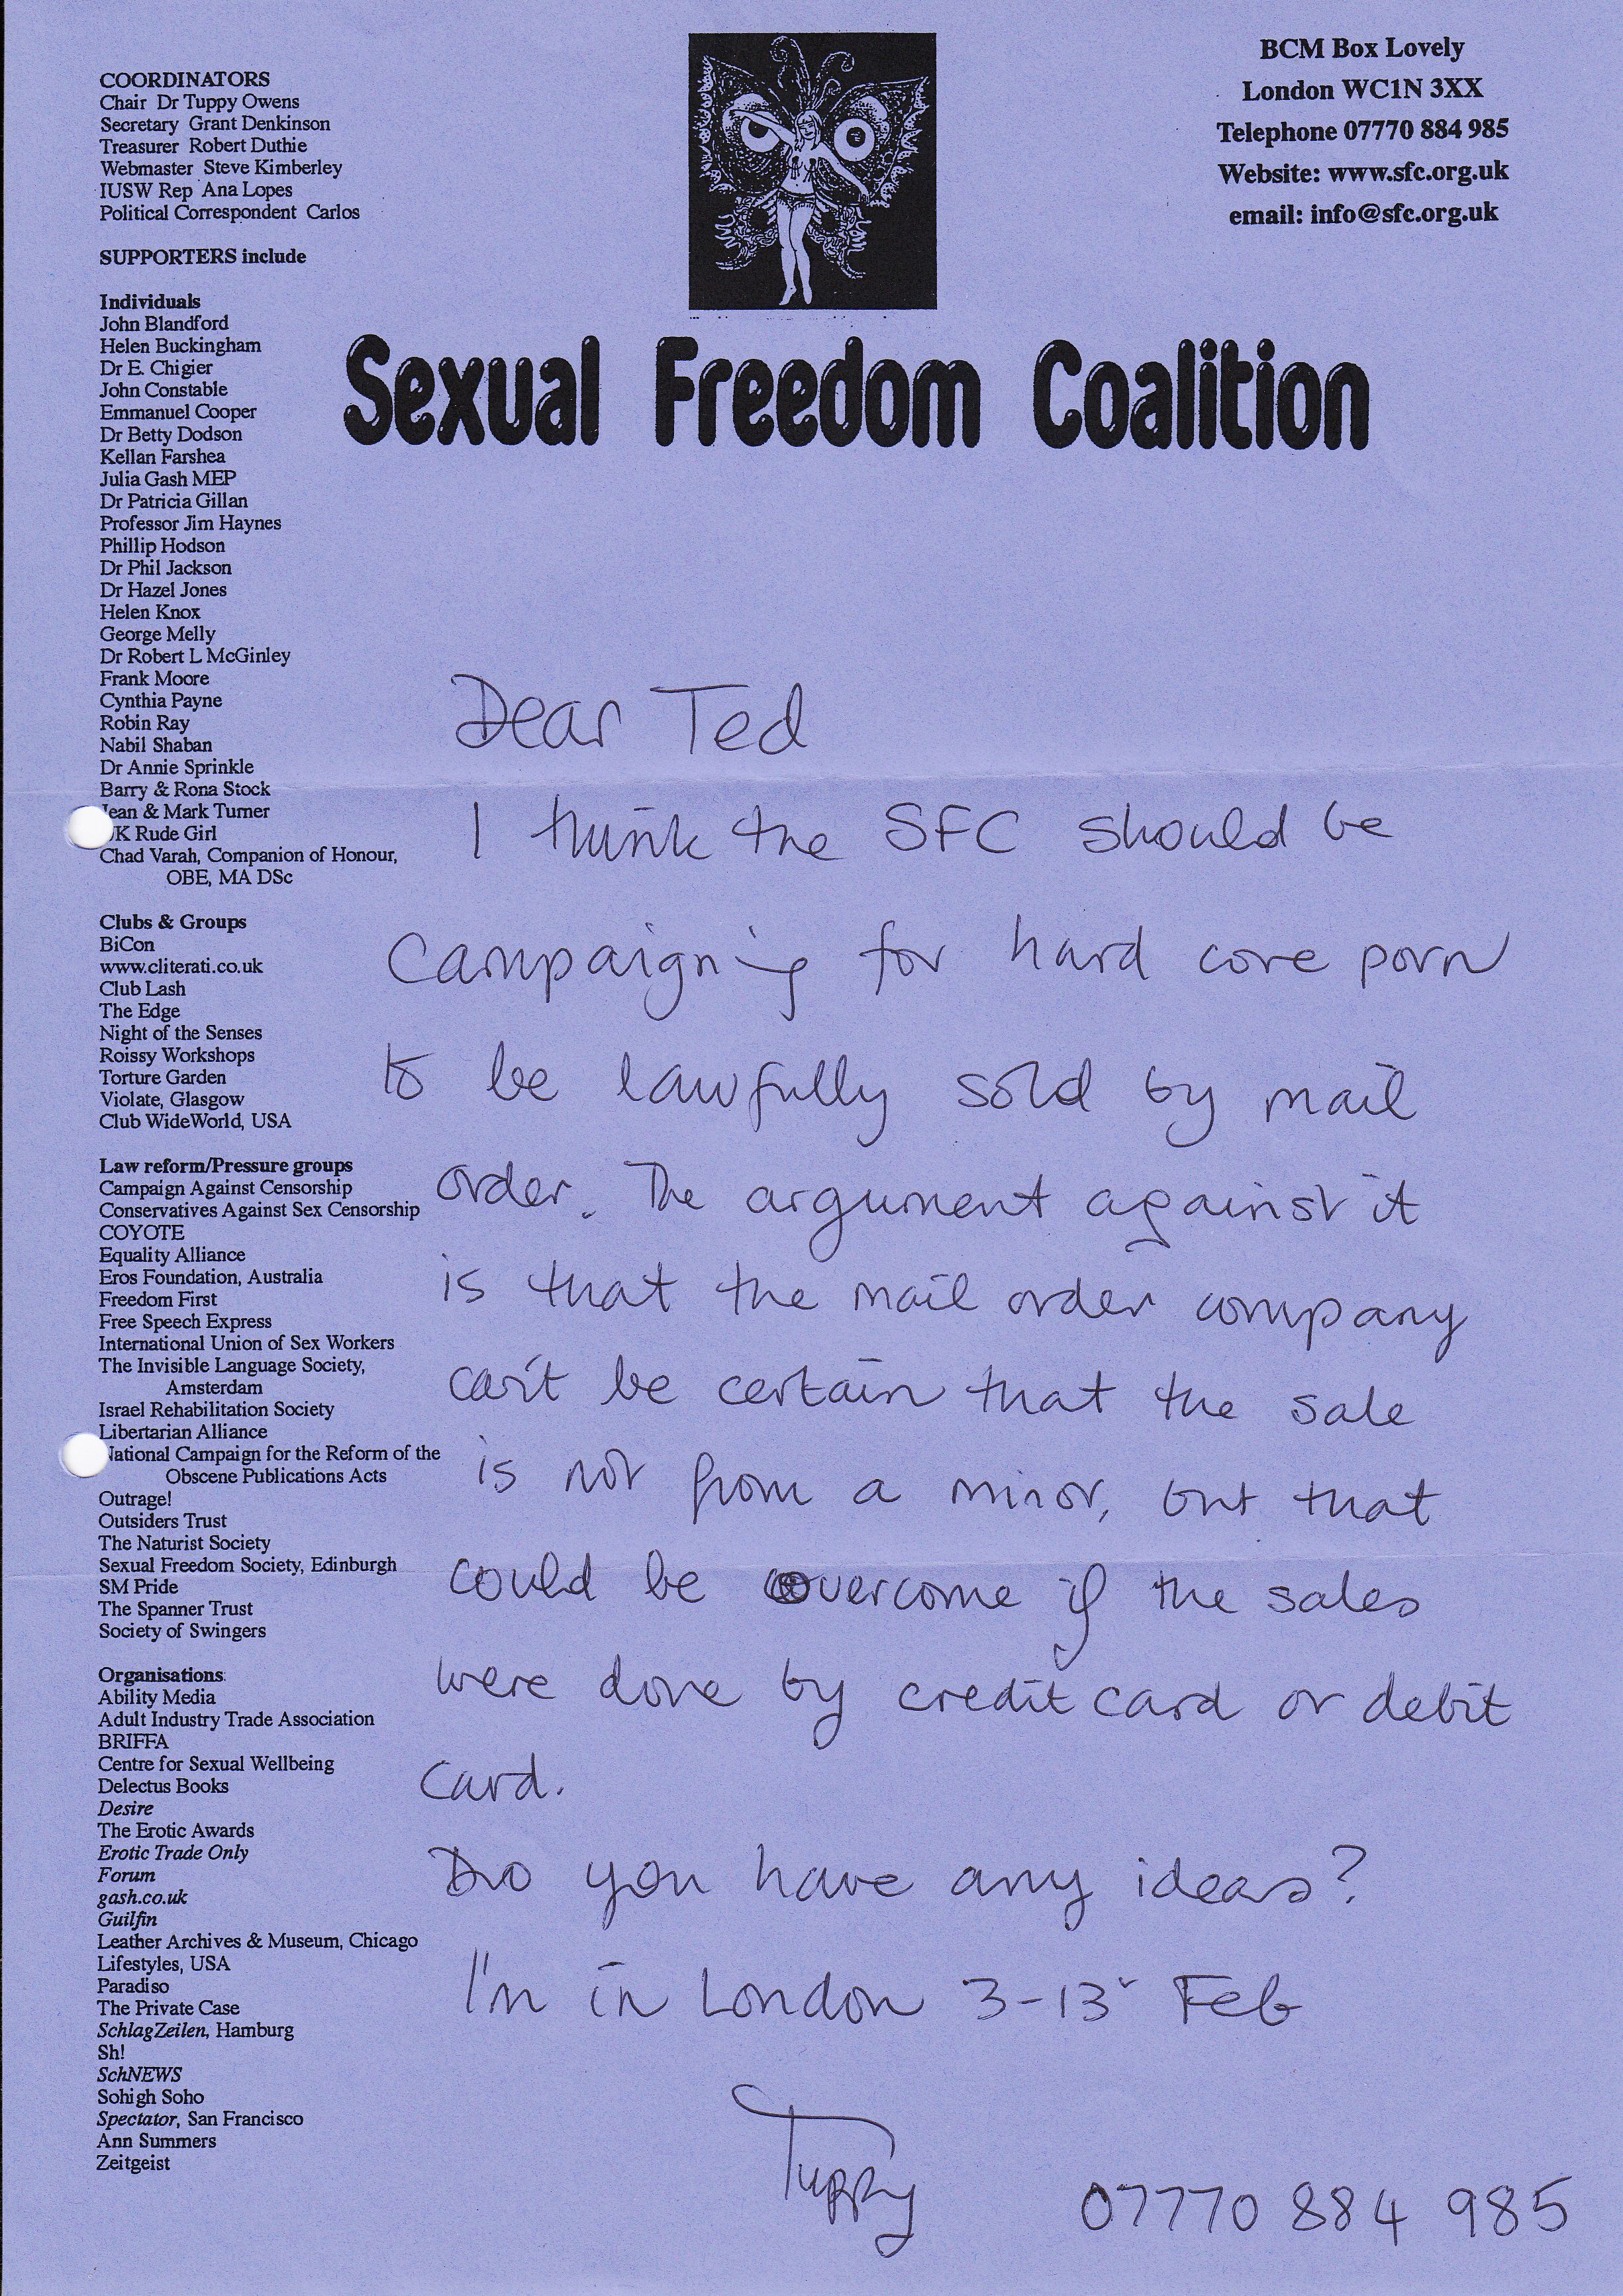 COORDINATORS
Chair Dr Tuppy Owens
Secretary Grant Denkinson
Treasurer Robert Duthie
Webmaster Steve Kimberley
IUSW Rep Ana Lopes
Political Correspondent Carlos
SUPPORTERS include
Individuals
John Blandford
Helen Buckingham
Dr E. Chigier
John Constable
Emmanuel Cooper
Dr Betty Dodson
Kellan Farshea
Julia Gash MEP
Dr Patricia Gillan
Professor Jim Haynes
Phillip Hodson
Dr Phil Jackson
Dr Hazel Jones
Helen Knox
George Melly
Dr Robert L McGinley
Frank Moore
Cynthia Payne
Robin Ray
Nabil Shaban
Dr Annie Sprinkle
Barry & Rona Stock
Jean & Mark Turner
UK Rude Girl
Chad Varah, Companion of Honour,
OBE, MA DSc
Clubs & Groups
BiCon
www.cliterati.co.uk
Club Lash
The Edge
Night of the Senses
Roissy Workshops
Torture Garden
Violate, Glasgow
Club WideWorld, USA
Law reform/Pressure groups
Campaign Against Censorship
Conservatives Against Sex Censorship
COYOTE
Equality Alliance
Eros Foundation, Australia
Freedom First
Free Speech Express
International Union of Sex Workers
The Invisible Language Society,
Amsterdam
Israel Rehabilitation Society
Libertarian Alliance
National Campaign for the Reform of the
Obscene Publications Acts
Outrage!
Outsiders Trust
The Naturist Society
Sexual Freedom Society, Edinburgh
SM Pride
The Spanner Trust
Society of Swingers
Organisations
Ability Media
Adult Industry Trade Association
BRIFFA
Centre for Sexual Wellbeing
Delectus Books
Desire
The Erotic Awards
Erotic Trade Only
Forum
gash.co.uk
Guilfin
Leather Archives & Museum, Chicago
Lifestyles, USA
Paradiso
The Private Case
SchlagZeilen, Hamburg
Sh!
SchNEWS
Sohigh Soho
Spectator, San Francisco
Ann Summers
Zeitgeist
BCM Box Lovely
London WC1N 3XX
Telephone 07770 884 985
Website: www.sfc.org.uk
email: info@sfc.org.uk
Sexual Freedom Coalition
Dear Ted
I think the SFC should be
campaigning for hard core porn
to be lawfully sold by mail
order. The argument against it
is that the mail order company
can't be certain that the sale
is not from a minor, but that
could be overcome if the sales
were done by credit card or debit
card.
Do you have any ideas?
I'm in London 3-13 Feb
Tuppy 07770 884 985